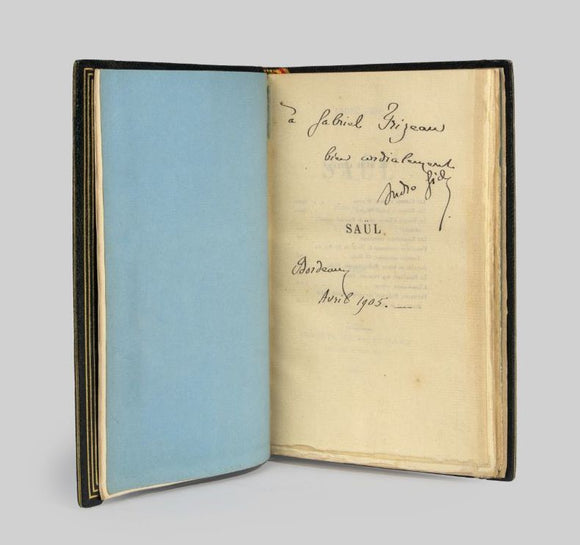 à Gabriel Frizeau
bien cordialement
André Gide
SAÜL
Bordeaux
Avril 1905.